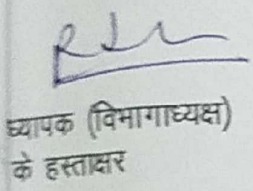 ध्यापक (विभागाध्यक्ष)
के हस्ताक्षर